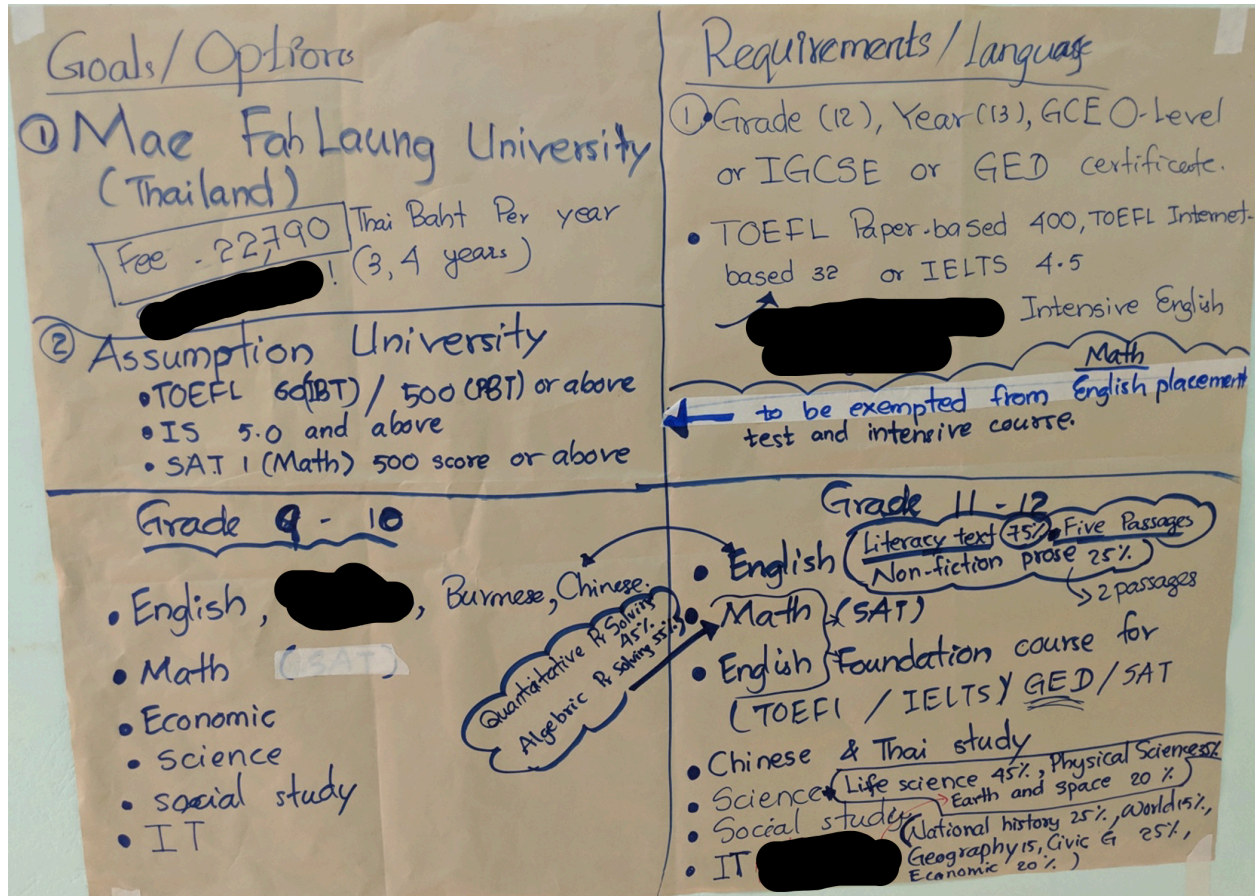 Goals/Options
① Mae Fah Laung University
(Thailand)
Fee - 22,790 Thai Baht Per year
! (3, 4 years)
② Assumption University
• TOEFL 60(IBT) / 500 (PBT) or above
• IS 5.0 and above
• SAT 1 (Math) 500 score or above
Requirements/Language
① • Grade (12), Year (13), GCE O-Level
or IGCSE or GED certificate.
• TOEFL Paper-based 400, TOEFL Internet-
based 32 or IELTS 4.5
Intensive English
Math
to be exempted from English placement
test and intensive course.
Grade 9 - 10
• English, , Burmese, Chinese.
• Math (SAT)
• Economic
• science
• social study
• IT
Quantaitative Pr Solving
45%
Algebric Pr solving 55%
Grade 11 - 12
• English (Literacy text 75% Five Passages
Non-fiction prose 25%)
2 passages
• Math (SAT)
• English Foundation course for
(TOEFl / IELTS) GED / SAT
• Chinese & Thai study
• Science (Life science 45%, Physical Science 35%
Earth and space 20%)
• Social study (National history 25%, World 15%,
Geography 15, Civic G 25%,
Economic 20%)
• IT